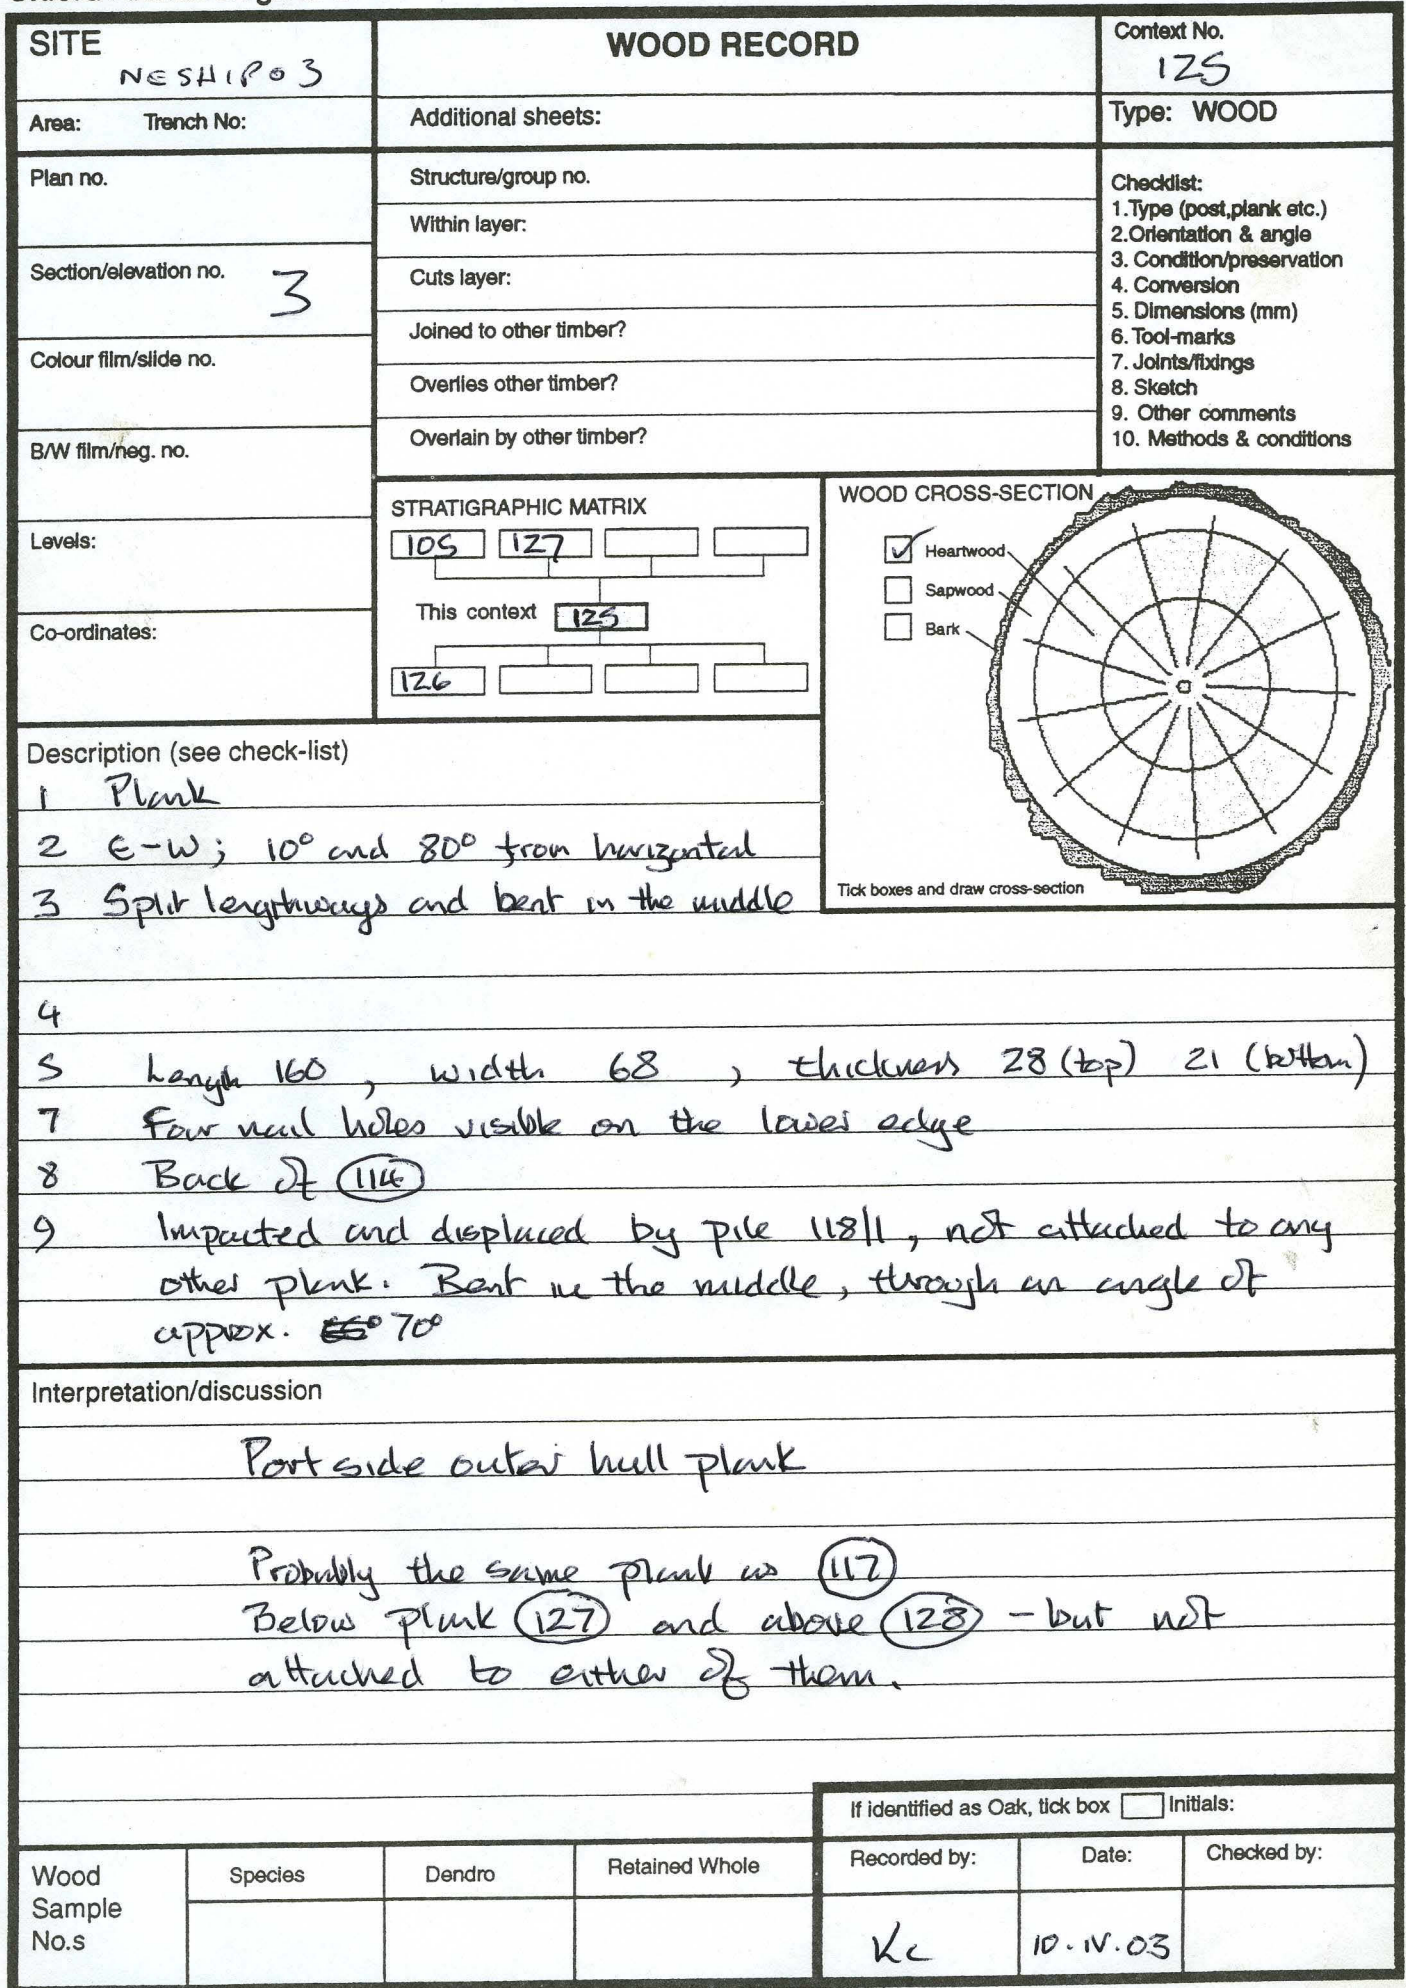 SITE
NESHIP03
WOOD RECORD
Context No.
125
Area: Trench No:
Additional sheets:
Type: WOOD
Plan no.
Structure/group no.
Within layer:
Section/elevation no. 3
Cuts layer:
Joined to other timber?
Colour film/slide no.
Overlies other timber?
B/W film/neg. no.
Overlain by other timber?
Checklist:
1.Type (post,plank etc.)
2.Orientation & angle
3. Condition/preservation
4. Conversion
5. Dimensions (mm)
6. Tool-marks
7. Joints/fixings
8. Sketch
9. Other comments
10. Methods & conditions
Levels:
Co-ordinates:
STRATIGRAPHIC MATRIX
105 127
This context 125
126
WOOD CROSS-SECTION
Heartwood
Sapwood
Bark
Tick boxes and draw cross-section
Description (see check-list)
1 Plank
2 E-W; 10° and 80° from horizontal
3 Split lengthways and bent in the middle
4
5 Length 160, width 68, thickness 28 (top) 21 (bottom)
7 Four nail holes visible on the lower edge
8 Back of 114
9 Impacted and displaced by pile 118/1, not attached to any
other plank. Bent in the middle, through an angle of
approx. 70°
Interpretation/discussion
Port side outer hull plank
Probably the same plank as 117
Below plank 127 and above 128 - but not
attached to either of them.
If identified as Oak, tick box Initials:
Wood
Sample
No.s
Species
Dendro
Retained Whole
Recorded by:
Date:
Checked by:
KC
10.IV.03